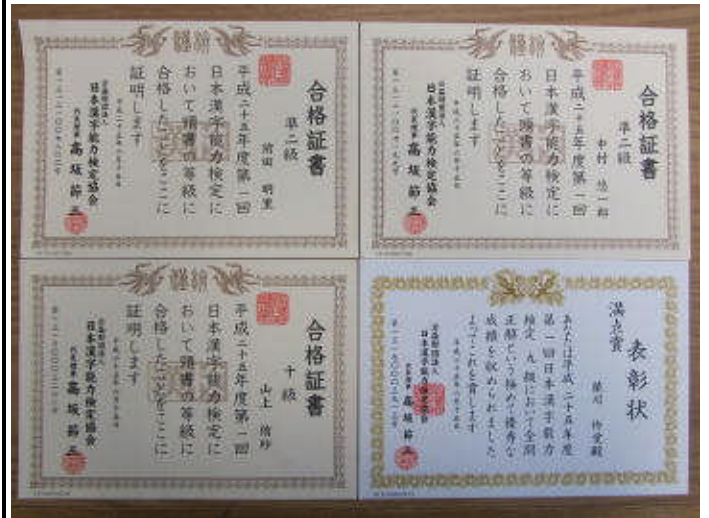 合格証書
準二級
明里
平成二十五年度第一回
日本漢字能力検定に
おいて頭書の等級に
合格したことをここに
証明します
公益財団法人
日本漢字能力検定協会
代表理事 高坂節三
合格証書
準二級
中村 悠一郎
平成二十五年度第一回
日本漢字能力検定に
おいて頭書の等級に
合格したことをここに
証明します
公益財団法人
日本漢字能力検定協会
代表理事 高坂節三
合格証書
十級
山上
平成二十五年度第一回
日本漢字能力検定に
おいて頭書の等級に
合格したことをここに
証明します
公益財団法人
日本漢字能力検定協会
代表理事 高坂節三
表彰状
満点賞
殿
あなたは平成二十五年度
第一回日本漢字能力
検定 九級において全問
正解という極めて優秀な
成績を収められました
よってこれを賞します
公益財団法人
日本漢字能力検定協会
代表理事 高坂節三